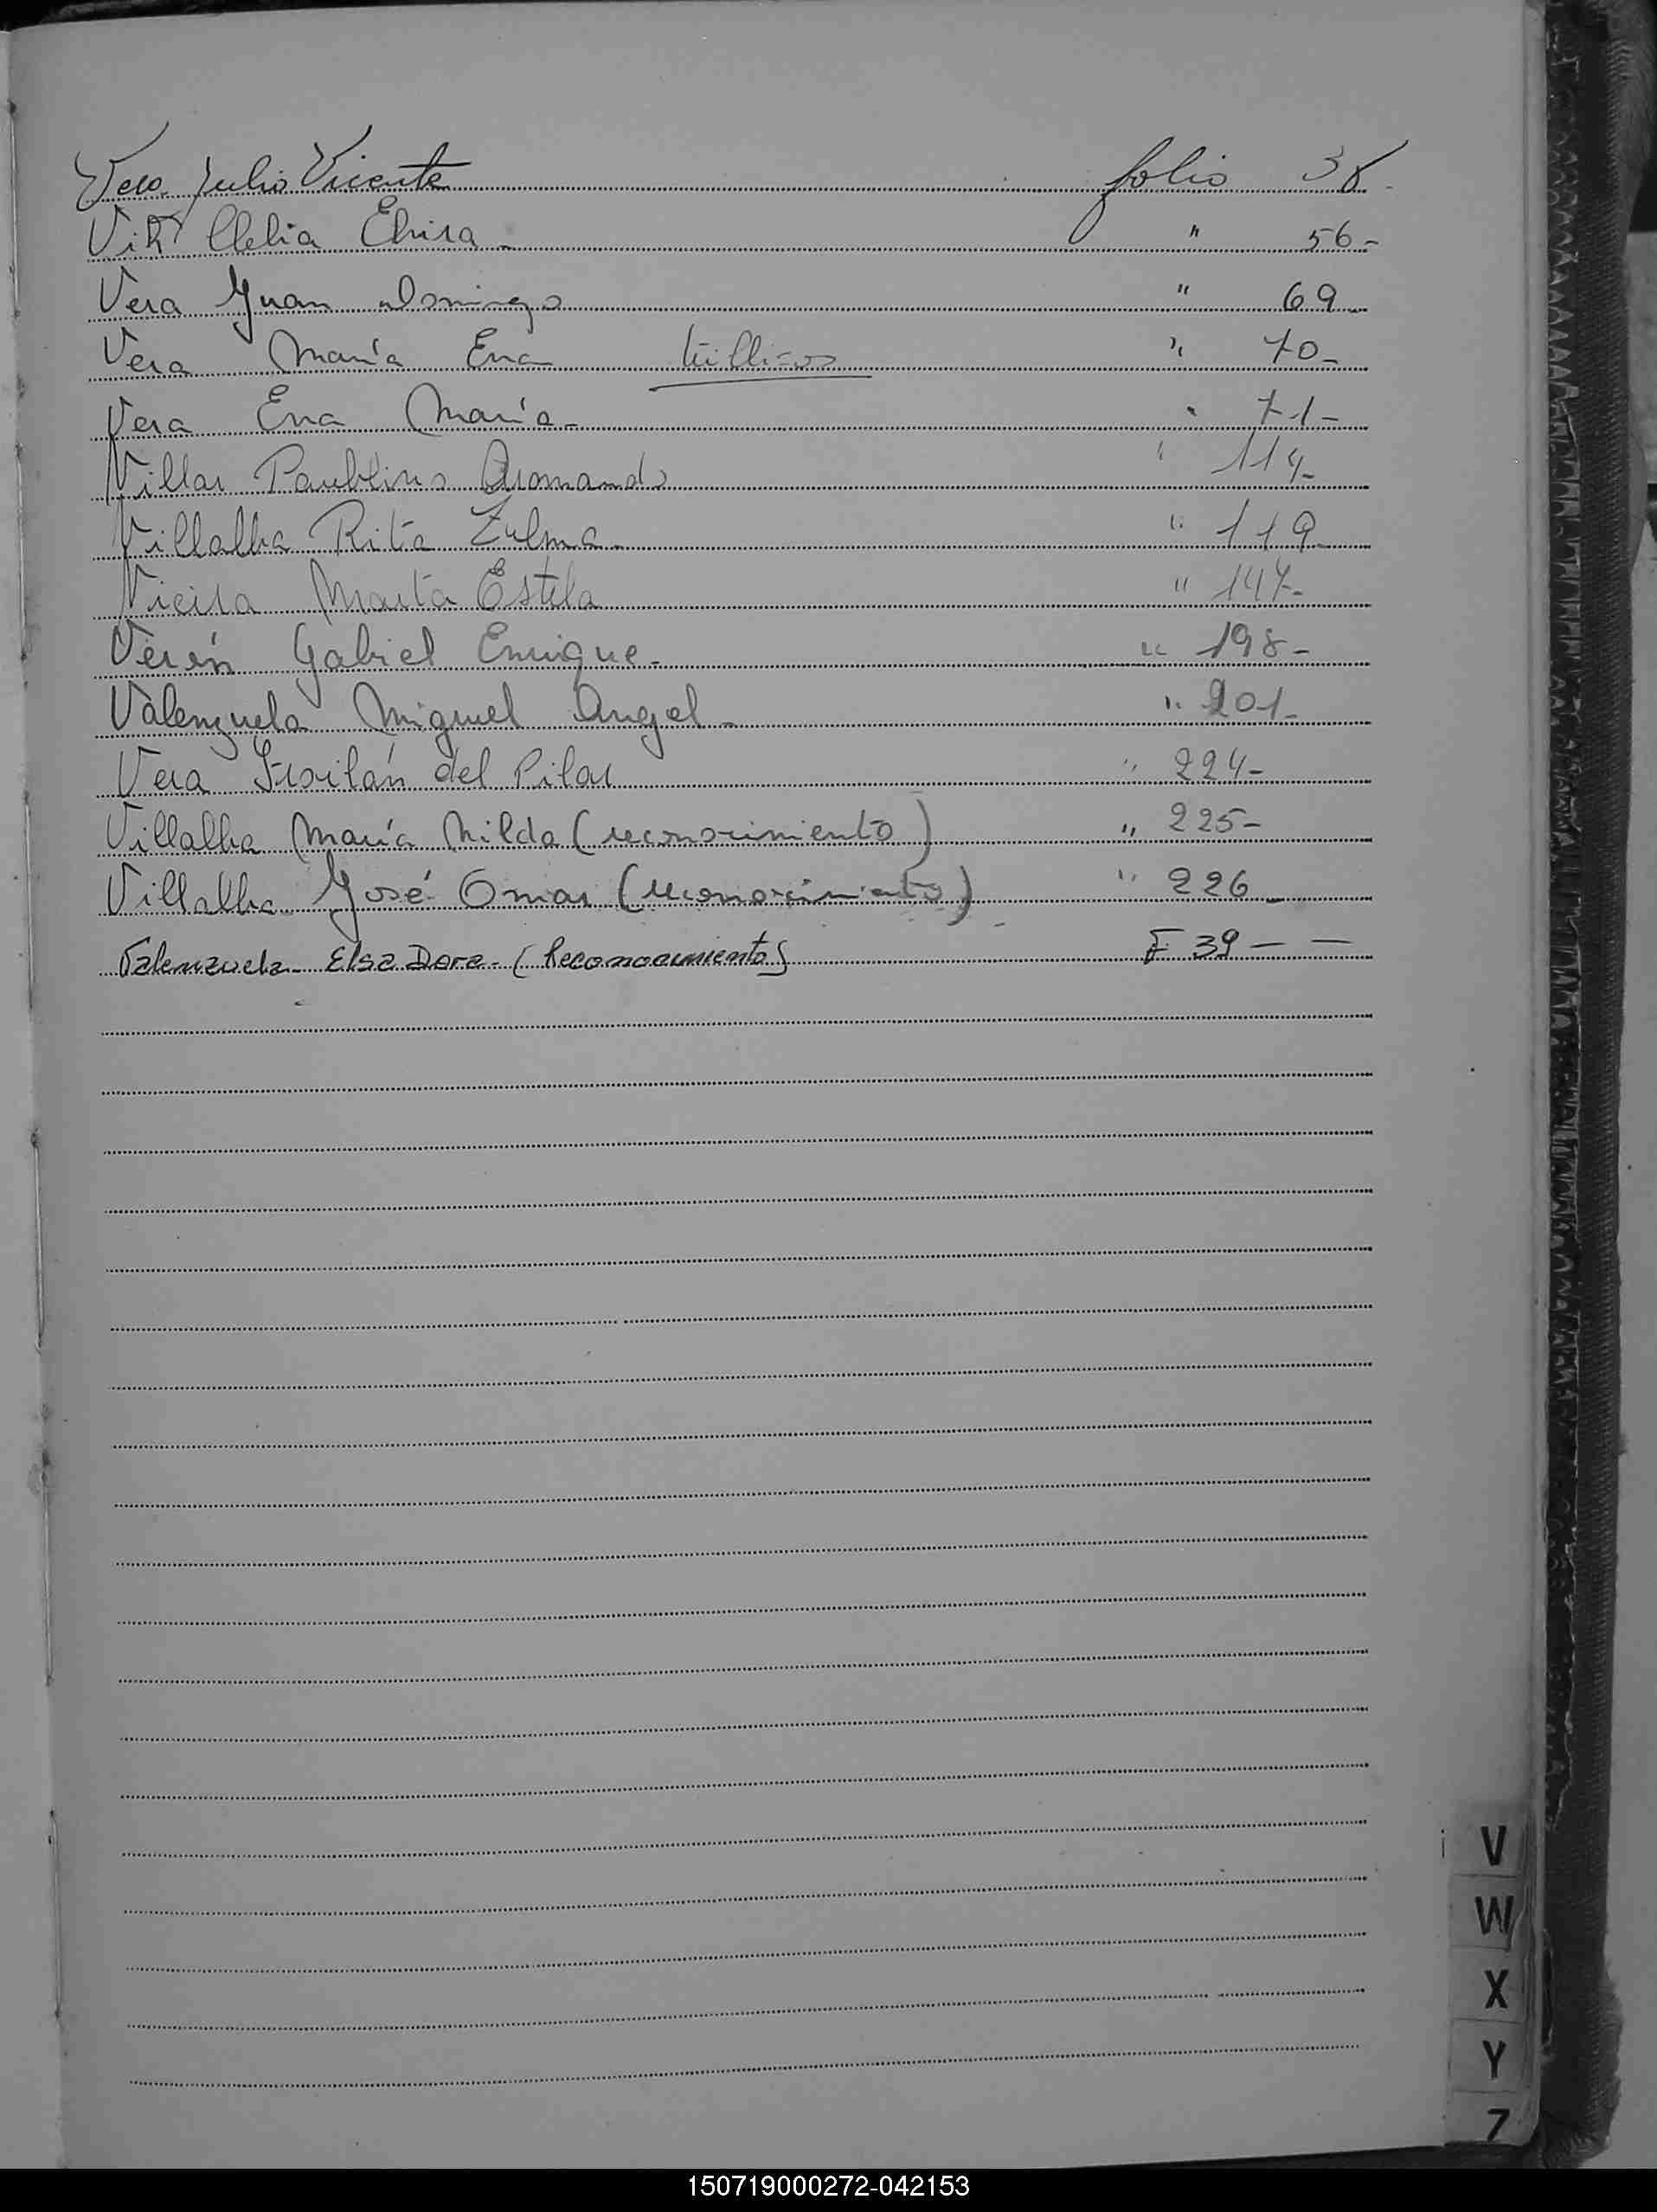 Vera Julio Vicente folio 38
Clelia Elvira - " 56 -
Vera Juan Domingo " 69 -
Vera María Ena Mellizos " 70 -
Vera Ena María - " 71 -
Villar Paublino Armando " 114 -
Villalba Rita Zulma - " 119 -
Vieira Marta Estela " 147 -
Verón Gabriel Enrique - " 198 -
Valenzuela Miguel Angel - " 201 -
Vera Froilán del Pilar " 224 -
Villalba María Nilda (reconocimiento) " 225 -
Villalba José Omar (reconocimiento) " 226 -
Valenzuela Elsa Dora - (Reconocimiento) F 39 - -
V
W
X
Y
Z
150719000272-042153